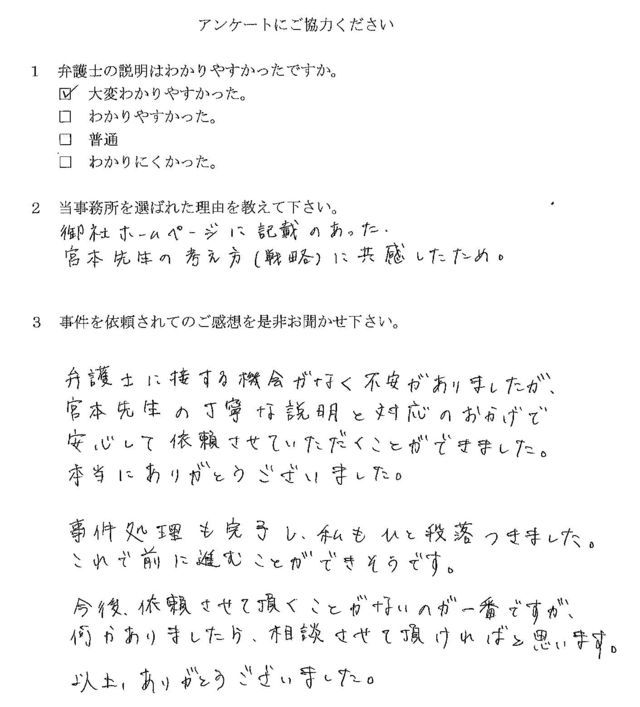 アンケートにご協力ください
1 弁護士の説明はわかりやすかったですか。
☑ 大変わかりやすかった。
□ わかりやすかった。
□ 普通
□ わかりにくかった。
2 当事務所を選ばれた理由を教えて下さい。
御社ホームページに記載のあった、
宮本先生の考え方(戦略)に共感したため。
3 事件を依頼されてのご感想を是非お聞かせ下さい。
弁護士に接する機会がなく不安がありましたが、
宮本先生の丁寧な説明と対応のおかげで
安心して依頼させていただくことができました。
本当にありがとうございました。
事件処理も完了し、私もひと段落つきました。
これで前に進むことができそうです。
今後、依頼させて頂くことがないのが一番ですが、
何かありましたら、相談させて頂ければと思います。
以上、ありがとうございました。